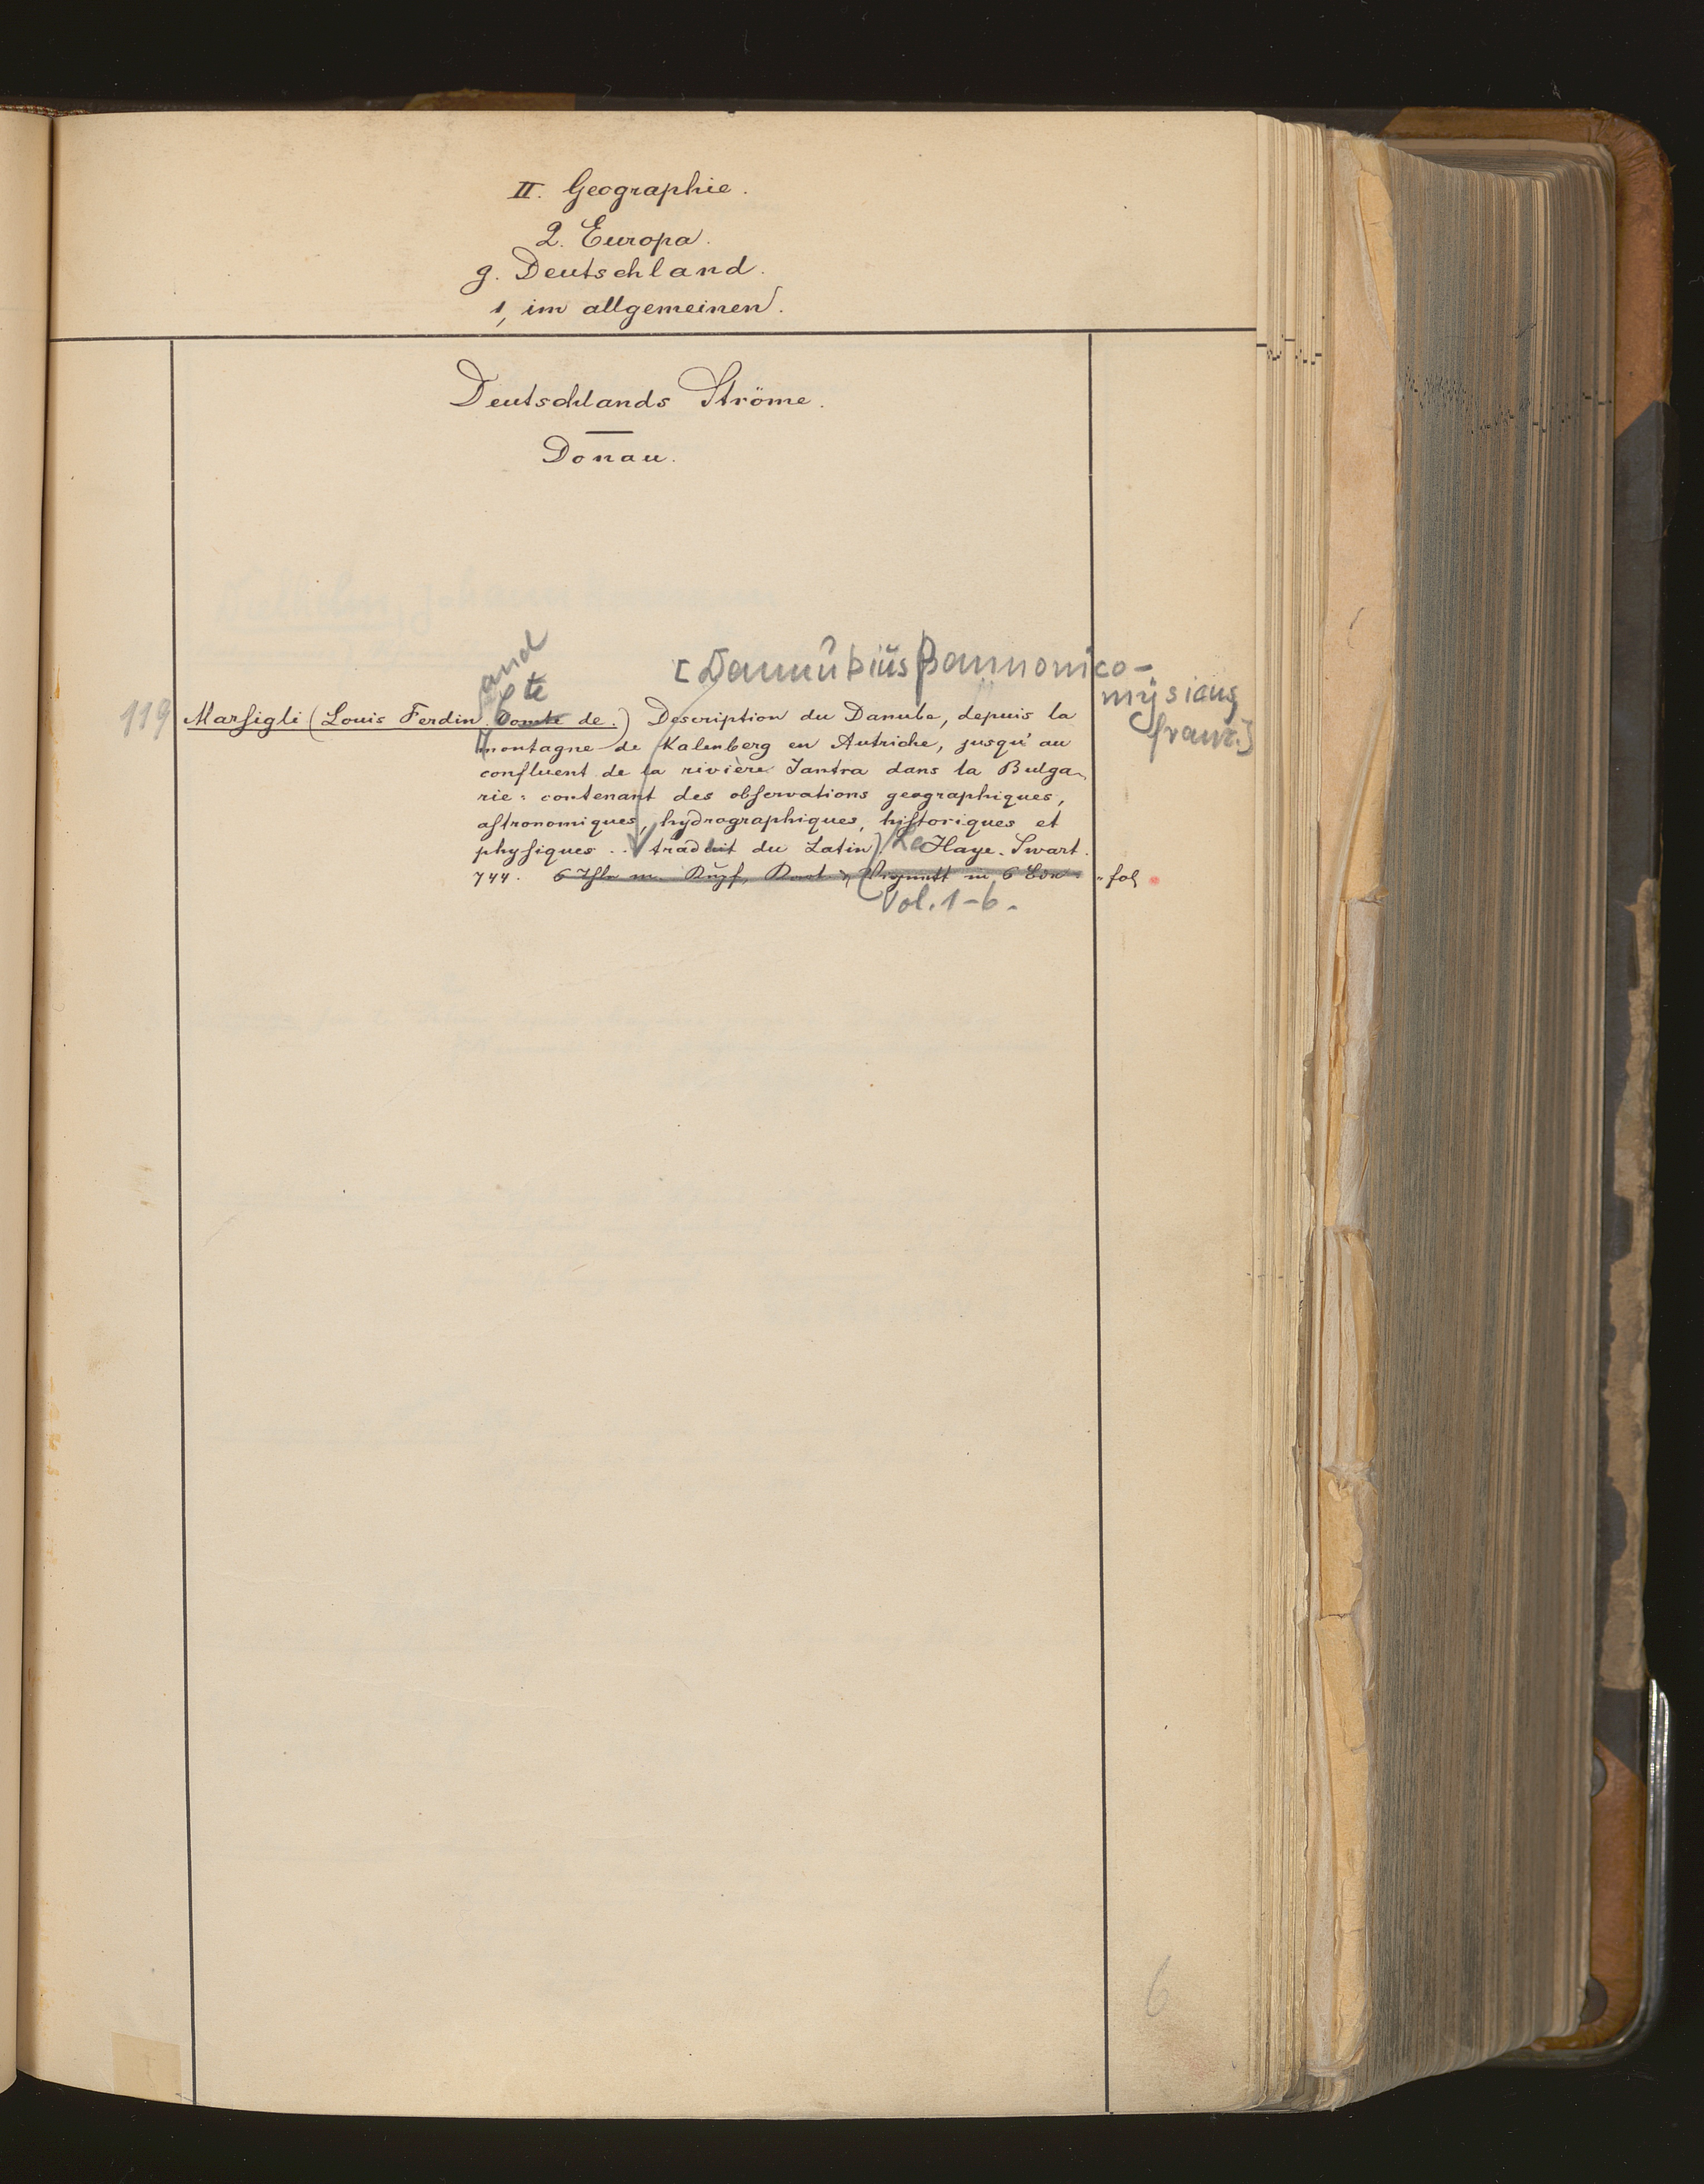 II. Geographie.
2. Europa.
g. Deutschland.
1, im allgemeinen.
Deutschlands Ströme.
Donau.
and
Cte
[Dannûbiŭs Pannonico-
mÿsicus
franz.]
119 Marſigli (Louis Ferdin. Comte de.) Description du Danube, depuis la
montagne de Kalenberg en Autriche, jusqu'au
confluent de la rivière Jantra dans la Bulga-
rie: contenant des obſervations geographiques,
aſtronomiques, hydrographiques, hiſtoriques et
phyſiques .. traduit du Latin). La Haye. Swart.
744. 6 in 6 fol
Vol. 1-6.
6